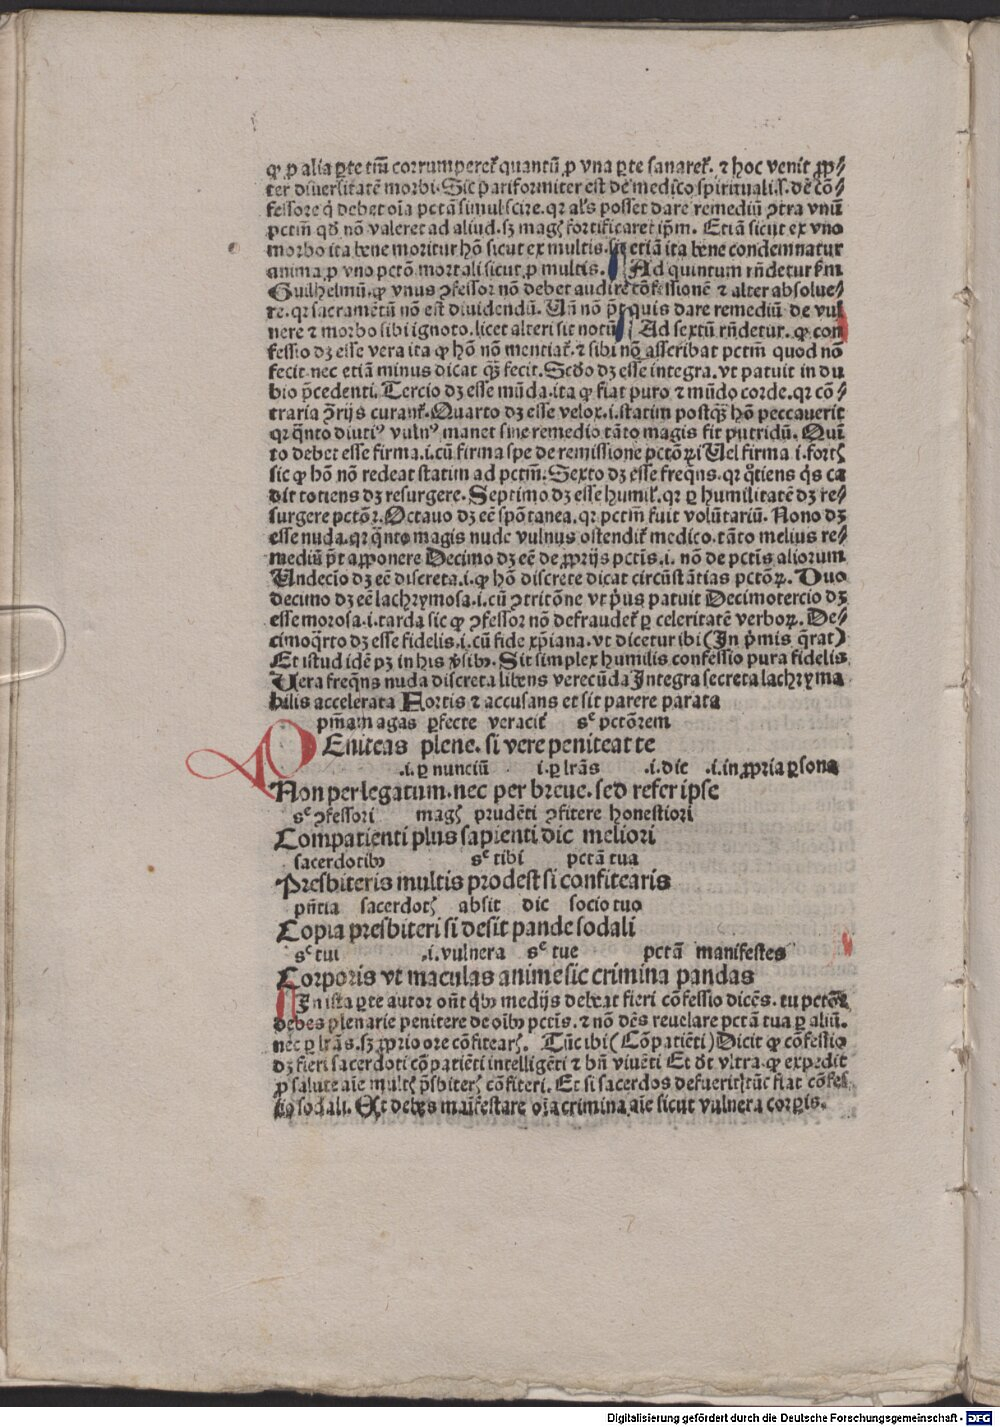 qꝫ ꝑ alia ꝑte tm̄ corrumperet᷑ quantū ꝑ vna ꝑte sanaret᷑. ⁊ hoc venit ꝓp⸗
ter diuersitatē morbi. Sic pariformiter est de medico spirituali.s. de cō⸗
fessore q̇ debet oīa pctā simul scire. qꝛ als posset dare remediū ꝯtra vnū
pctm̄ qd̄ nō valeret ad aliud. sꝫ magꝭ fortificaret ip̄m. Etiā sicut ex vno
morbo ita bene moritur hō sicut ex multis. sic etiā ita bene condemnatur
anima ꝑ vno pctō mortali sicut ꝑ multis. Ad quintum rn̄detur ẜm
Guilhelmū. qꝫ vnus ꝯfessor nō debet audire cōfessionē ⁊ alter absolue⸗
re. qꝛ sacramētū nō est diuidendū. Un̄ nō pōt quis dare remediū de vul
nere ⁊ morbo sibi ignoto. licet alteri sit notū Ad sextū rn̄detur. qꝫ con
fessio dꝫ esse vera ita qꝫ hō nō mentiat᷑. ⁊ sibi nō asscribat pctm̄ quod nō
fecit. nec etiā minus dicat qꝫ̄ fecit. Scḋo dꝫ esse integra. vt patuit in du
bio p̄cedenti. Tercio dꝫ esse mūda. ita qꝫ fiat puro ⁊ mūdo corde. qꝛ cō⸗
traria ꝯ̄rijs curant᷑. Quarto dꝫ esse velox .i. statim postqꝫ̄ hō peccauerit
qꝛ q̄nto diutiꝰ vulnꝰ manet sine remedio tāto magis fit putridū. Quī
to debet esse firma .i. cū firma spe de remissione pctōꝝ .i Uel firma .i. fortꝭ
sic qꝫ hō nō redeat statim ad pctm̄. Sexto dꝫ esse freq̄ns. qꝛ q̊tiens q̇s ca
dit totiens dꝫ resurgere. Septimo dꝫ esse humil᷑. qꝛ ꝑ humilitatē dꝫ re⸗
surgere pctōꝝ. Octauo dꝫ eē spōtanea. qꝛ pctm̄ fuit volūtariū. Nono dꝫ
esse nuda. qꝛ q̄nto magis nude vulnus ostendit᷑ medico. tāto melius re⸗
mediū pōt apponere Decimo dꝫ eē de ꝓprijs pctīs .i. nō de pctīs aliorum
Undecīo dꝫ eē discreta .i. qꝫ hō discrete dicat circūstātias pctōꝝ. Duo
decimo dꝫ eē lachrymosa .i. cū ꝯtritōne vt pꝰus patuit Decimotercio dꝫ
esse morosa .i. tarda sic qꝫ ꝯfessor nō defraudet᷑ ꝑ celeritatē verboꝝ. De⸗
cimoq̄rto dꝫ esse fidelis .i. cū fide xp̄iana. vt dicetur ibi (In p̄mis q̄rat)
Et istud idē pꝫ in his v̄sibꝫ. Sit simplex humilis confessio pura fidelis
Uera freq̄ns nuda discreta libens verecūda Integra secreta lachryma
bilis accelerata Fortis ⁊ accusans et sit parere parata
pn̄iam agas ꝑfecte veracit᷑ sᶜ pctōrem
PEniteas plene. si vere peniteat te
.i. ꝑ nunciū i. ꝑ lrās .i. dic .i. in ꝓpria ꝑsona
Non per legatum. nec per breue. sed refer ipse
sᶜ ꝯfessori magꝭ prudēti ꝯfitere honestiori
Compatienti plus sapienti dic meliori
sacerdotibꝫ sᶜ tibi pctā tua
Presbiteris multis prodest si confitearis
pn̄tia sacerdotꝭ absit dic socio tuo
Copia presbiteri si desit pande sodali
sᶜ tui .i. vulnera sᶜ tue pctā manifestes
Corporis vt maculas anime sic crimina pandas
In ista ꝑte autor on̄t q̇bꝫ medijs debeat fieri cōfessio dicēs. tu pctōr
debes plenarie penitere de oībꝫ pctīs. ⁊ nō dēs reuelare pctā tua ꝑ aliū.
nec ꝑ lrās. sꝫ ꝓprio ore cōfitearꝭ. Tūc ibi (Cōpatiēti) Dicit qꝫ cōfessio
dꝫ fieri sacerdoti cōpatiēti intelligēti ⁊ bn̄ viuēti Et dt̄ vltra. qꝫ expedit
ꝓ salute aīe multꝭ p̄sbiterꝭ cōfiteri. Et si sacerdos defuerit tūc fiat cōfes
sio sodali. Et debes maīfestare oīa crimina aīe sicut vulnera corꝑis.
Digitalisierung gefördert durch die Deutsche Forschungsgemeinschaft - DFG